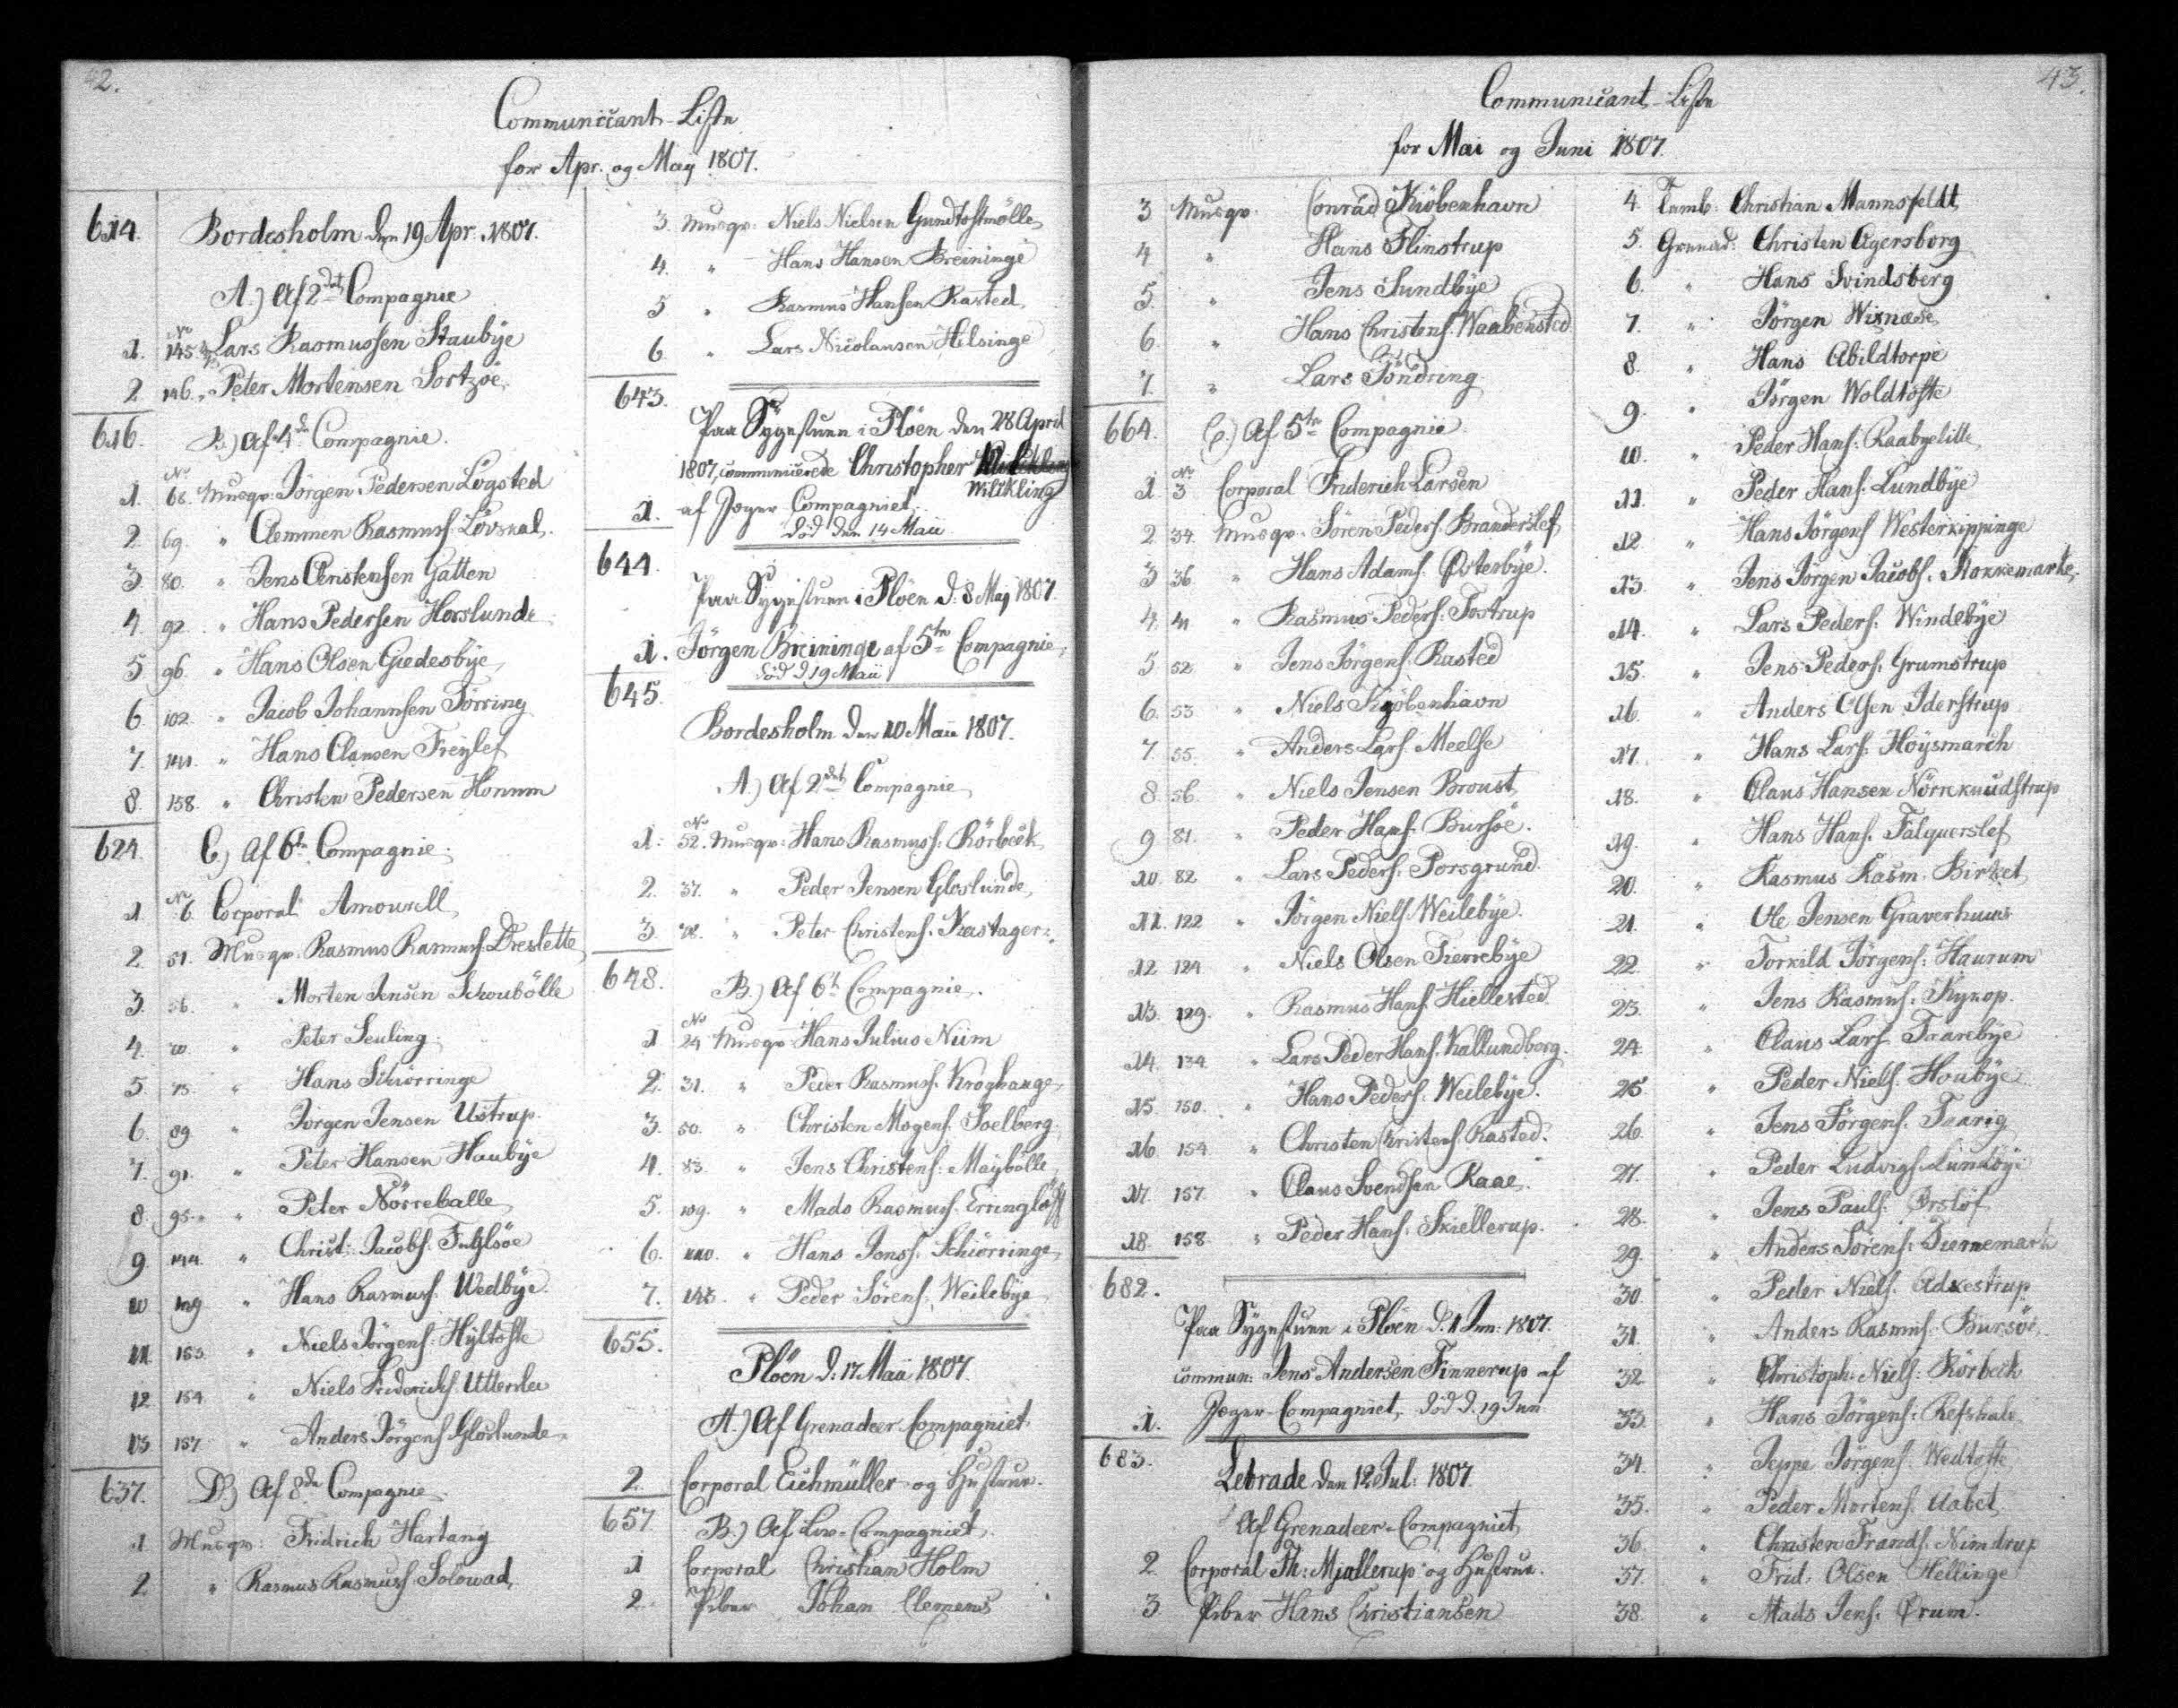 42.
Communicant-Liste
for Apr. og May 1807.
614. Bordesholm den 19 Apr. 1807.
A.) Af 2det Compagnie
1. No 145. Lars Rasmussen Staubye
2 146. " Peter Mortensen Sortzöe
616. B.) af 4de Compagnie.
1. No 68. Musqr. Jörgen Pedersen Lögsted
2 69. " Clemmen Rasmuss. Lövskal.
3 80. " Jens Christensen Gatten
4. 92. " Hans Pedersen Horslunde
5 96. " Hans Olsen Giedesbye
6 102. " Jacob Johannsen Törring
7. 141. " Hans Clausen Freylef
8. 158. " Christen Pedersen Honum
624. C.) Af 6te Compagnie.
1 No 6 Corporal Amourell
2. 51. Musqr. Rasmus Rasmuss. Dreslette
3. 56. " Morten Jensen Schoubölle
4. 70 " Peter Seuling
5 75. " Hans Schiörringe
6. 89 " Jörgen Jensen Ustrup.
7. 91. " Peter Hansen Haubye
8. 95. " Peter Nörreballe
9 " Christ. Jacobs. Fuglsöe
10 " Hans Rasmuss. Wedbye
11 153. " Niels Jörgens. Hyltofte
12 154. " Niels Friderichs. Utterslev
13 157 " Anders Jörgens. Gloslunde
637. D.) Af 8de Compagnie
1 Musqr: Fridrich Hartang
2 " Rasmus Rasmuss. Solowad
3. Musqr. Niels Nielsen Gundtoftmölle
4. " Hans Hansen Breininge
5 " Rasmus Hansen Rasted
6. " Lars Nicolausen Helsinge
643.
Paa Sygestuen i Plöen den 28 April
1807, communicerede Christopher
Wilckling
1. af Jæger Compagniet.
död den 14 Maii
644.
Paa Sygestuen i Plöen d. 8 May 1807.
1. Jörgen Breininge af 5te Compagnie,
död d 19 Maii
645.
Bordesholm den 10 Maii 1807.
A.) Af 2det Compagnie
1. No 52. Musqr: Hans Rasmuss. Rörbeck
2. 37. " Peder Jensen Gloslunde
3. 78. " Peter Christens. Kastager.
648. B.) Af 6te Compagnie.
1 No 24 Musqr Hans Julius Niim
2. 31. " Peder Rasmuss. Kroghauge
3. 50. " Christen Mogens. Poelberg
4. 83. " Jens Christens. Maybölle
5. 109. " Mads Rasmuss. Erringlöff
6. 110. " Hans Jenss. Schiörringe
7. 143. " Peder Sörens. Weilebye
655.
Plöen d. 17 Maii 1807.
A.) Af Grenadeer-Compagniet.
2. Corporal Eichmüller og Hustrue.
657 B.) Af Liv-Compagniet.
1 Corporal Christian Holm
2. Piber Johan Clemens
43.
Communicant-Liste
for Mai og Juni 1807.
3 Musqr. Conrad Kiöbenhavn
4 " Hans Flinstrup
5. " Jens Sundbye
6. " Hans Christens. Waabensted
7. " Lars Töndring
664. C.) Af 5te Compagnie
1 No 3 Corporal Friderich Larsen
2 34. Musqr. Sören Peders. Branderslef
3 36. " Hans Adams. Österbye.
4. 41 " Rasmus Peders. Tostrup
5 52. " Jens Jörgens. Rasted
6. 53 " Niels Kjöbenhavn
7. 55. " Anders Lars. Meelse
8. 56. " Niels Jensen Broust
9 81. " Peder Hans. Bursöe.
10. 82 " Lars Peders. Porsgrund.
11. 122 " Jörgen Niels. Weilebye.
12 124 " Niels Olsen Tierrebye
13. 129. " Rasmus Hans. Hiellested
14. 134. " Lars Peder Hans. Kallundborg.
15. 150. " Hans Peders. Weilebye.
16 154 " Christen Christens. Rasted.
17. 157. " Claus Svendsen Raae.
18. 158. " Peder Hans. Skiellerup.
682.
Paa Sygestuen i Plöen d. 1 Jun: 1807.
commun: Jens Andersen Finnerup af
1. Jæger-Compagniet, död d. 19 Jun
683.
Lebrade den 12 Jul: 1807.
Af Grenadeer-Compagniet
2 Corporal Th: Mjallerup og Hustrue.
3 Piber Hans Christiansen
4. Tamb. Christian Mannsfeldt
5. Grenad: Christen Agersborg
6. " Hans Svindsberg
7. " Jörgen Wixnæse
8. " Hans Abildtorpe
9. " Jörgen Woldtofte
10. " Peder Hans. Raabyelille
11. " Peder Hans. Lundbye
12 " Hans Jörgens Westerkippinge
13. " Jens Jörgen Jacobs. Kokkemarke
14. " Lars Peders. Windebye
15. " Jens Peders. Grumstrup
16. " Anders Olsen Iderstrup
17. " Hans Lars. Höysmarch
18. " Claus Hansen Nörreknudstrup
19. " Hans Hans. Falquerslef
20. " Rasmus Rasm. Birket
21. " Ole Jensen Graverhuus
22. " Torkild Jörgens. Haurum
23. " Jens Rasmus. Kykop.
24. " Claus Lars. Traarebye
25 " Peder Niels. Houbye
26. " Jens Jörgens. Taarig
27. " Peder Ludvigs. Lundbye
28. " Jens Pauls. Örslöf
29. " Anders Sörens. Tiernemark
30. " Peder Niels. Adkestrup
31. " Anders Rasmus. Bursöe
32 " Christoph. Niels. Rörbeck
33. " Hans Jörgens. Refshale
34. " Jeppe Jörgens. Wedtofte
35. " Peder Mortens. Aabet
36. " Christen Frands. Nimdrup
37. " Frid. Olsen Hellinge
38. " Mads Jens. Örum.